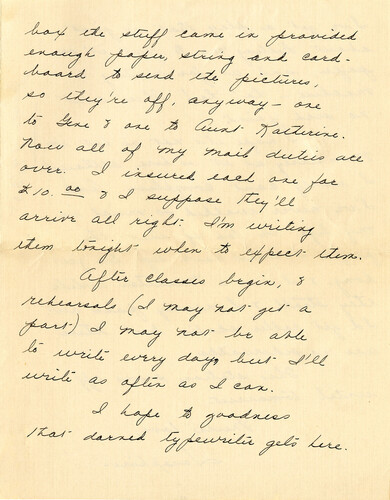 box the stuff came in provided
enough paper, string and card-
board to send the pictures,
so they're off, anyway - one
to Gene & one to Aunt Katherine.
Now all of my mail duties are
over. I insured each one for
$10.00 & I suppose they'll
arrive all right. I'm writing
them tonight when to expect them.
After classes begin, &
rehearsals (I may not get a
part) I may not be able
to write every day, but I'll
write as often as I can.
I hope to goodness
that darned typewriter gets here.